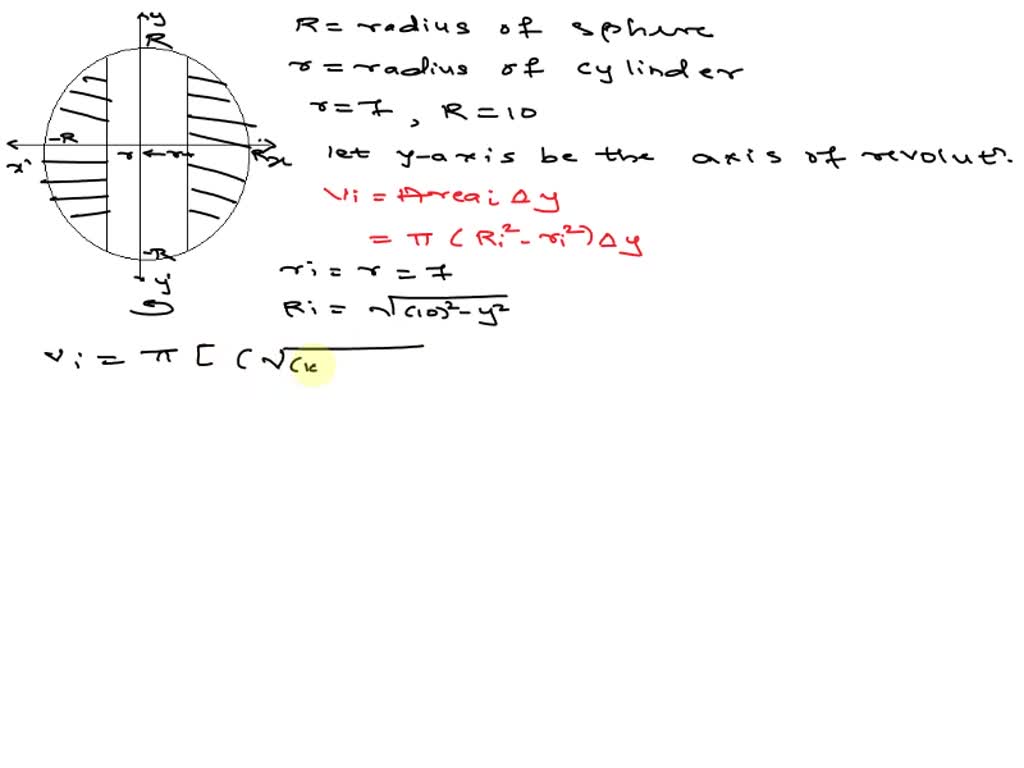 y
R
R = radius of sphere
r = radius of cylinder
r = 7 , R = 10
-R
r
r
R
x
x'
let y-axis be the axis of revolutⁿ.
Vi = Areai Δy
= π (Ri² - ri²) Δy
-R
y'
ri = r = 7
Ri = √(10)² - y²
vi = π [ (√(1